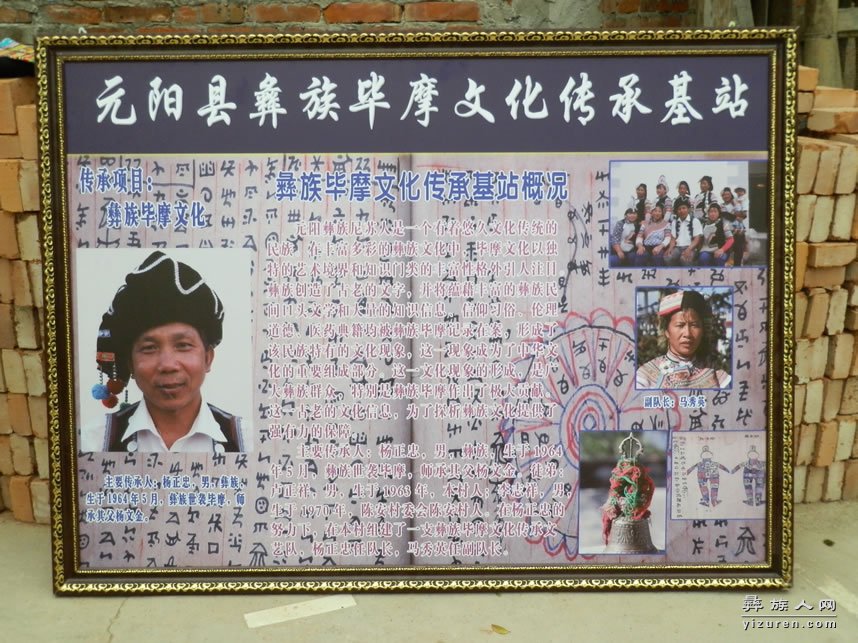 元阳县彝族毕摩文化传承基站
传承项目：
彝族毕摩文化
彝族毕摩文化传承基站概况
元阳彝族尼苏人是一个有着悠久文化传统的
民族，在丰富多彩的彝族文化中，毕摩文化以独
特的艺术境界和知识门类的丰富性格外引人注目
彝族创造了古老的文字，并将蕴藉丰富的彝族民
间口头文学和大量的知识信息，信仰习俗、伦理
道德、医药典籍均被彝族毕摩记录在案，形成了
该民族特有的文化现象，这一现象成为了中华文
化的重要组成部分。这一文化现象的形成，是广
大彝族群众，特别是彝族毕摩作出了极大贡献。
这一古老的文化信息，为了探析彝族文化提供了
强有力的保障。
主要传承人：杨正忠，男，彝族，生于1964
年5月，彝族世袭毕摩，师承其父杨文金。徒弟：
卢正祥，男，生于1963年，本村人；李志祥，男，
生于1970年，陈安村委会陈安村人。在杨正忠的
努力下，在本村组建了一支彝族毕摩文化传承文
艺队，杨正忠任队长，马秀英任副队长。
主要传承人：杨正忠，男，彝族，
生于1964年5月，彝族世袭毕摩，师
承其父杨文金。
副队长：马秀英
彝族人网
yizuren.com